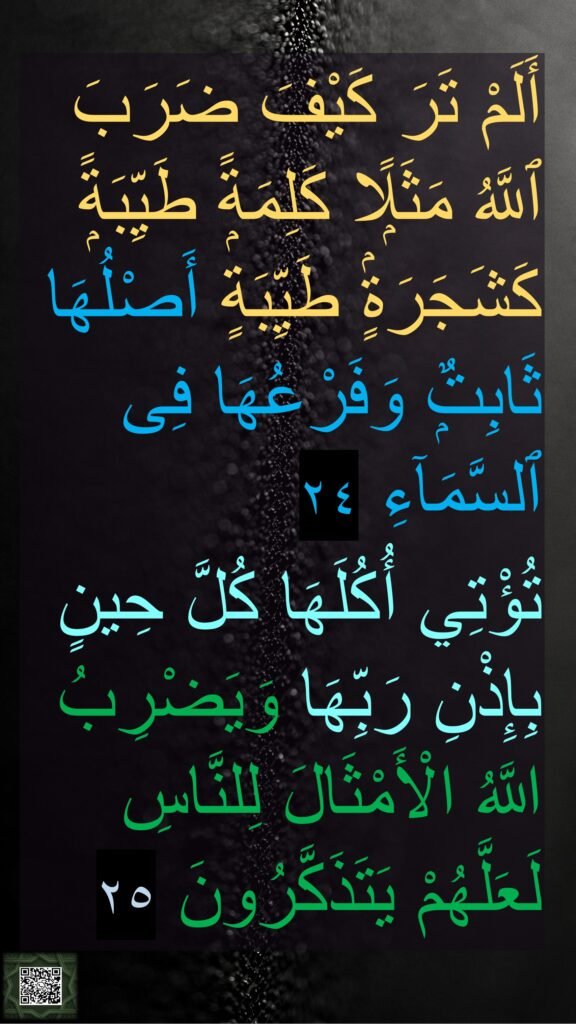 أَلَمْ تَرَ كَيْفَ ضَرَبَ
ٱللَّهُ مَثَلًۭا كَلِمَةًۭ طَيِّبَةًۭ
كَشَجَرَةٍۢ طَيِّبَةٍ أَصْلُهَا
ثَابِتٌۭ وَفَرْعُهَا فِى
ٱلسَّمَآءِ ٢٤
تُؤْتِي أُكُلَهَا كُلَّ حِينٍ
بِإِذْنِ رَبِّهَا وَيَضْرِبُ
اللَّهُ الْأَمْثَالَ لِلنَّاسِ
لَعَلَّهُمْ يَتَذَكَّرُونَ ٢٥